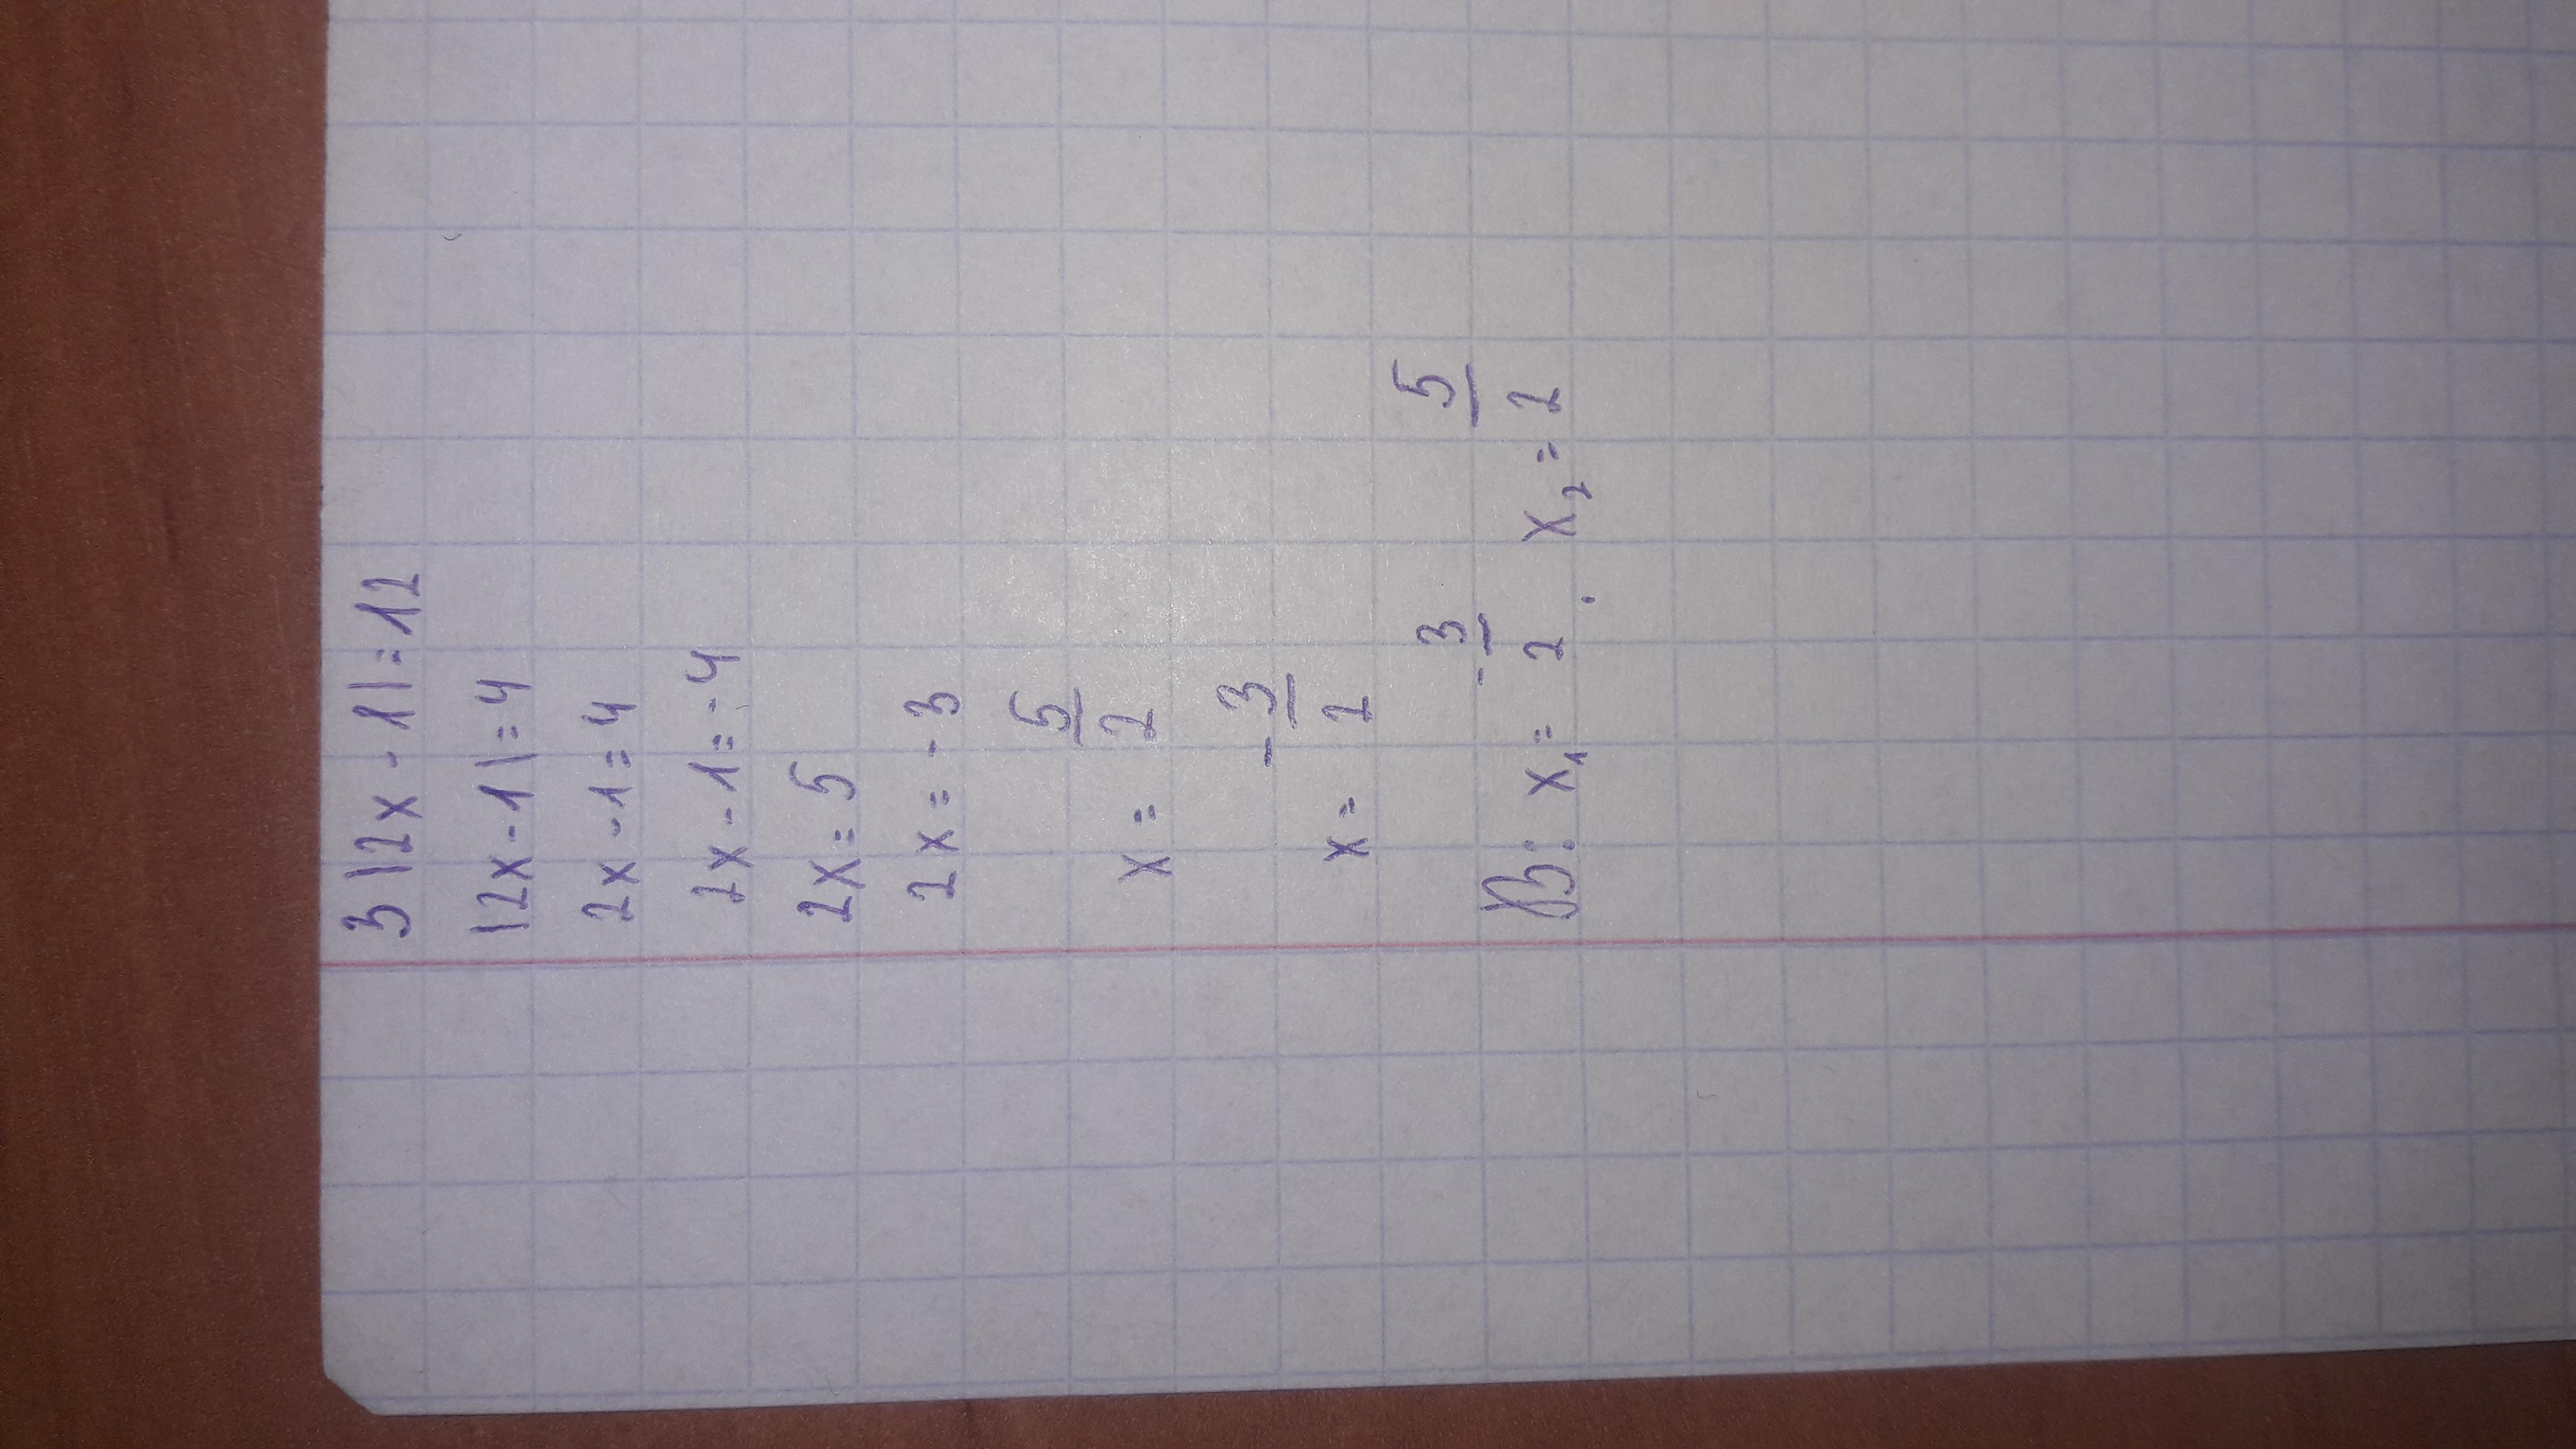 3|2x-1|=12
|2x-1|=4
2x-1=4
2x-1=-4
2x=5
2x=-3
x=5/2
x=-3/2
В: x₁=-3/2. x₂=5/2